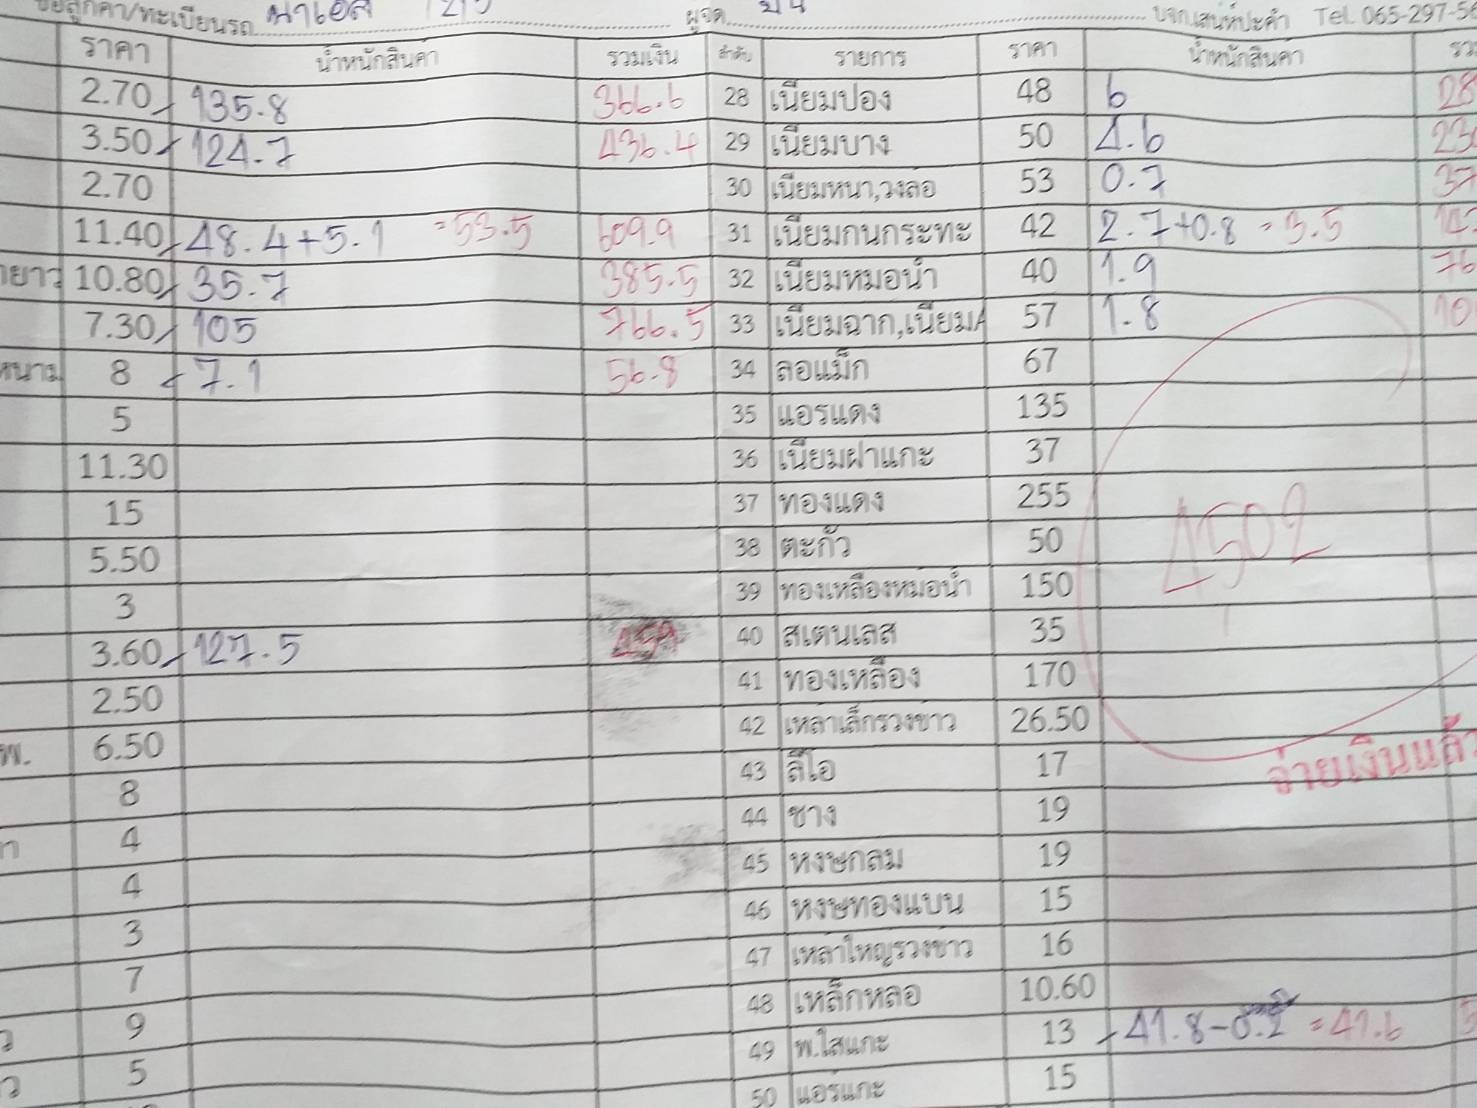 ชื่อลูกค้า/ทะเบียนรถ ผู้จด Tel. 065-297-56
ราคา น้ำหนักสินค้า รวมเงิน ลำดับ รายการ ราคา น้ำหนักสินค้า
2.70 135.8 366.6 28 เนียมป๋อง 48 6 28
3.50 124.7 436.4 29 เนียมบาง 50 4.6 23
2.70 30 เนียมหนา,วงล้อ 53 0.7 37
11.40 48.4+5.1 =53.5 609.9 31 เนียมก้นกระทะ 42 2.7+0.8 = 3.5 147
10.80 35.7 385.5 32 เนียมหม้อน้ำ 40 1.9 76
7.30 105 766.5 33 เนียมฉาก,เนียม 57 1.8 10
หนาม 8 7.1 56.8 34 ล้อแม็ก 67
5 35 แอร์แดง 135
11.30 36 เนียมฝาแกะ 37
15 37 ทองแดง 255 4502
5.50 38 ตะกั่ว 50
3 39 ทองเหลืองหม้อน้ำ 150
3.60 127.5 459 40 สแตนเลส 35
2.50 41 ทองเหลือง 170
พ. 6.50 42 เหล้าเล็กรวงข้าว 26.50
8 43 ลีโอ 17 จ่ายเงินแล้ว
4 44 ช้าง 19
4 45 หงษ์กลม 19
3 46 หงษ์ทองแบน 15
7 47 เหล้าใหญ่รวงข้าว 16
9 48 เหล็กหล่อ 10.60
5 49 พ.ใสแกะ 13 41.8-0.2 = 41.6
50 แอร์แกะ 15